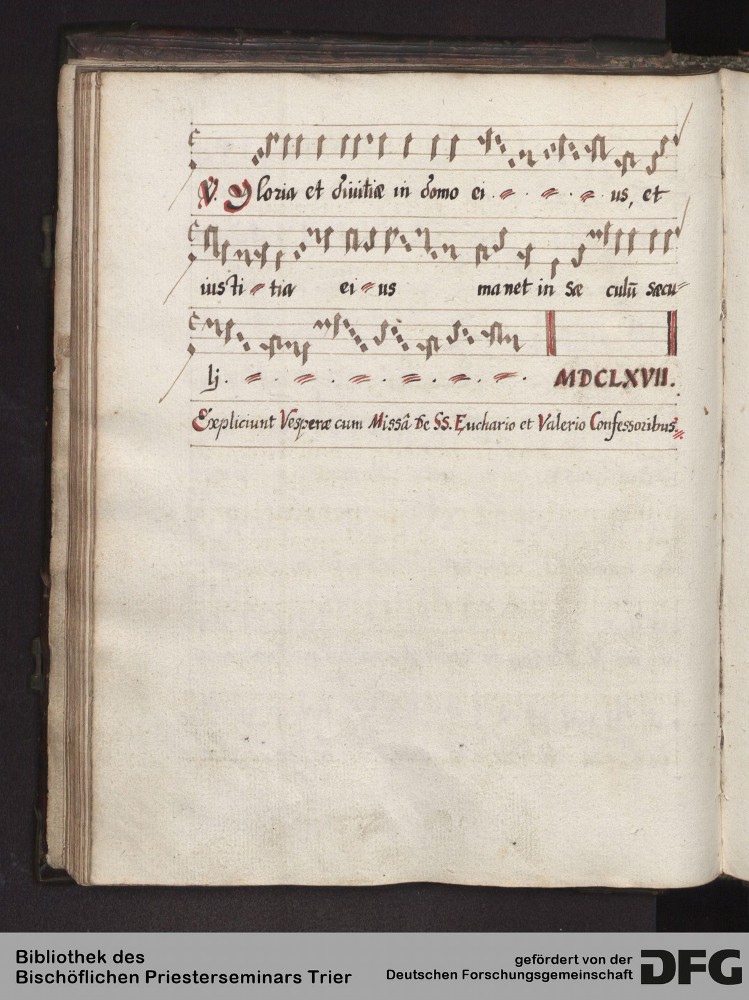 V. Gloria et divitiæ in domo ei - - - us, et
iusti - tia ei - us manet in Sæ culũ sæcu-
lj. - - - - - - . MDCLXVII.
Expliciunt Vesperæ cum Missâ De SS. Euchario et Valerio Confessoribus.
Bibliothek des
Bischöflichen Priesterseminars Trier
gefördert von der
Deutschen Forschungsgemeinschaft
DFG